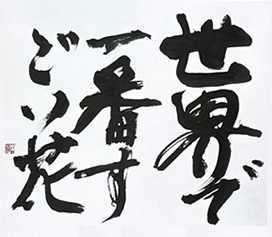 世界で
一番す
ごい花